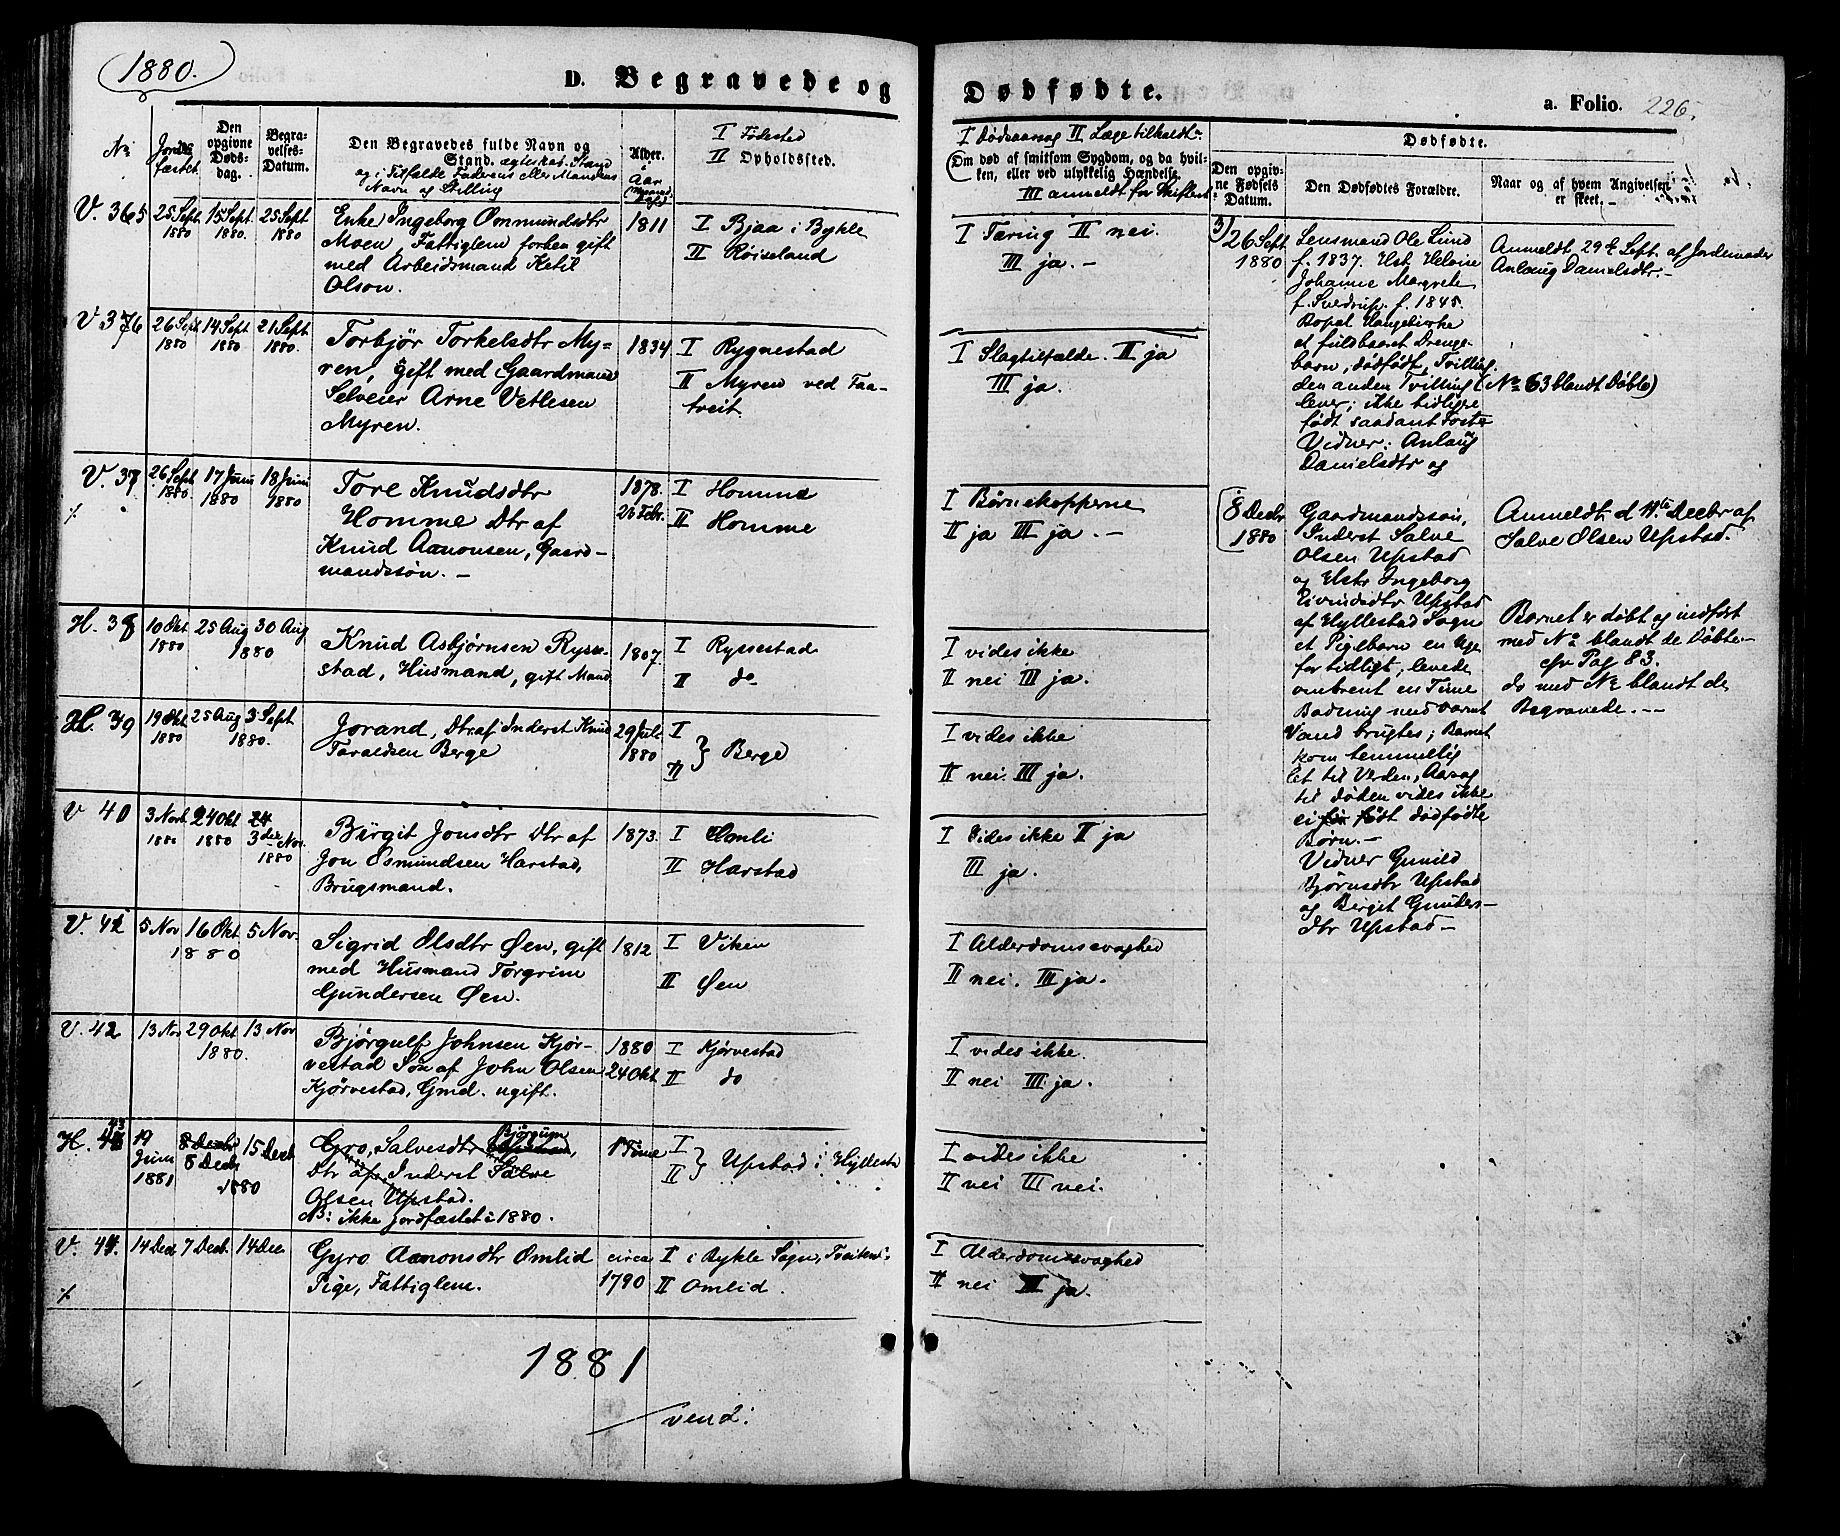 1880.
D. Begravede og
Dødfødte.
a. Folio. 226.
No
Jordfæstet
Den opgivne Døds-dag.
Begra-velses-Datum.
Den Begravedes fulde Navn og
Stand. ægteskab. Stand
og i Tilfælde Faderens eller Mandens
Navn og Stilling
Alder.
Aar
I Fødested
II Opholdssted.
I Dødsaarsag II Læge tilkaldt
(Om død af smitsom Sygdom, og da hvil-
ken, eller ved ulykkelig Hændelse.
III anmeldt for Skifteret
Dødfødte.
Den opgiv-
ne Fødsels
Datum.
Den Dødfødtes Forældre.
Naar og af hvem Angivelsen
er skeet.
V. 365
25 Sept. 1880
15 Sept. 1880.
25 Sept 1880
Enke Ingeborg Ommundsdtr
Moen, Fattiglem forhen gift
med Arbeidsmand Ketil
Olson.
1811
I Bjaa i Bykle
II Røiseland
I Tæring II nei.
III ja. -
V. 376
26 Sept 1880
14 Sept 1880
21 Sept. 1880.
Torbjør Torkelsdtr My-
ren, gift med Gaardmand
Selveier Arne Vetlesen
Myren.
1834
I Rygnestad
II Myren ved Faa-
treit.
I Slagtilfælde. II ja
III ja.
V. 37
26 Sept 1880
17 Juni 1880
18 Juni 1880
Tore Knudsdtr
Homme Dtr af
Knud Aanonsen, Gaard-
mandssøn. -
1878.
26 Febr.
I Homme
II Homme
I Børnekopperne
II ja III ja. -
H. 38
10 Okt 1880
25 Aug 30 Aug
1880
Knud Asbjørnsen Rysse-
stad, Husmand, gift Mand
1807.
I Ryssestad
II do
I vides ikke
II nei III ja.
H. 39
19 Okt 1880
25 Aug 3 Sept
1880.
Jorand, Dtr af Inderst Knud
Taraldsen Berge
29 Juli
1880
I
II } Berge
I vides ikke
II nei. III ja.
V 40
3 Novb 1880
24 Okt 1880
24
3die Nov.
1880
Birgit Jonsdtr Dtr af
Jon Osmundsen Harstad,
Brugsmand.
1873.
I Omli
II Harstad
I Vides ikke II ja
III ja.
V. 41
5 Nov 16 Okt 5 Nov.
1880
Sigrid Olsdtr Øen, gift
med Husmand Torgrim
Gundersen Øen.
1812
I Viken
II Øen
I Alderdomssvaghed
II nei. III ja.
V. 42
13 Nov 29 Okt 13 Nov
1880.
Bjørgulf Johnsen Kjør-
vestad Søn af John Olsen
Kjørvestad, Gmd. ugift.
1880
24 Okt
I Kjørvestad
II do
I vides ikke.
II nei III ja.
H. 43
19
Juni
1881
8 Decbr
8 Decb
15 Decb
1880
Gyro, Salvesdtr Bjørgum,
Dtr af Inderst Salve
Olsen Upstad.
NB: ikke jordfæstet i 1880.
1 Time
I
II } Upstad i Hyllestad
I vides ikke
II nei III nei.
V. 44.
14 Dec 7 Decb. 14 Dec
Gyro Aanonsdtr Omlid
Pige, Fattiglem.
circa
1790
I i Bykle Sogn,
II Omlid.
I Alderdomssvaghed
II nei III ja.
1881
vend:
3/26 Sept
1880
Lensmand Ole Lund
f. 1837. Hst. Helvine
Johanne Margrete
f. Sverdrup. f. 1845.
Bopæl Haugebirke
et fuldbaaret Drenge-
barn, dødfødt, Tvilling.
den anden Tvilling
lever; ikke tidligere
født saadant Foster
Vidner: Anlaug
Danielsdtr og
Anmeldt 29de Sept. af Jordemoder
Anlaug Danielsdtr. -
(No 63 blandt Døbte)
8 Decbr
1880
Gaardmandssøn,
Inderst Salve
Olsen Upstad
og Hstr Ingeborg
Eivindsdtr Upstad
af Hyllestad Sogn
et Pigebarn en Uge
for tidligt, levede
ombrent en Time
Badning med varmt
Vand brugtes; Barnet
kom temmelig
let til Verden, Aarsag
til døden vides ikke
ei før født dødfødte
Børn. -
Vidner Gunild
Bjørnsdtr Upstad
og Bergit Gunders-
dtr Upstad -
Anmeldt d 11te Decbr af
Salve Olsen Upstad.
Barnet er døbt og indført
med No blandt de Døbte -
cfr Pag 83.
do med No blandt de
Begravede. --